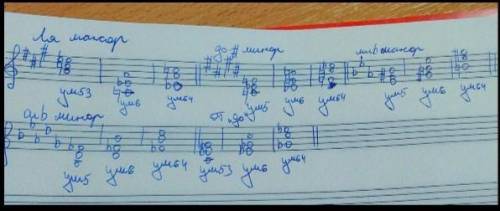 Ля мажор до # минор миb мажор
ум53 ум6 ум64 ум5 ум6 ум64 ум5 ум6 ум64
минор от "до"
ум5 ум6 ум64 ум53 ум6 ум64